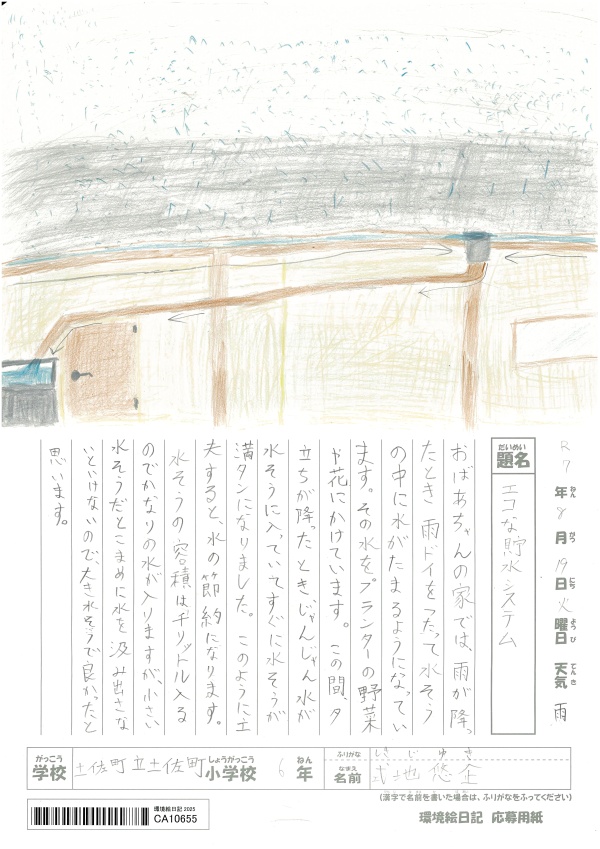 R7年8月19日火曜日 天気 雨
ねん がつ にち ようび てんき
だいめい
題名 エコな貯水システム
おばあちゃんの家では、雨が降っ
たとき雨ドイをつたって水そう
の中に水がたまるようになってい
ます。その水をプランターの野菜
や花にかけています。この間、夕
立ちが降ったとき、じゃんじゃん水が
水そうに入っていてすぐに水そうが
満タンになりました。このように工
夫すると、水の節約になります。
水そうの容積は千リットル入る
のでかなりの水が入りますが、小さい
水そうだとこまめに水を汲み出さな
いといけないので、大き水そうで良かったと
思います。
がっこう しょうがっこう ねん
学校 土佐町立土佐町小学校 6年
ふりがな しきじ ゆき
なまえ
名前 式地 悠企
(漢字で名前を書いた場合は、ふりがなをふってください)
環境絵日記 2025
CA10655
環境絵日記 応募用紙